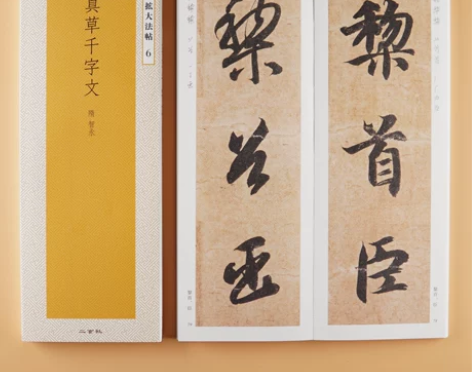 拡大法帖 6
真草千字文
隋 智永
二玄社
黎首臣
黎首臣